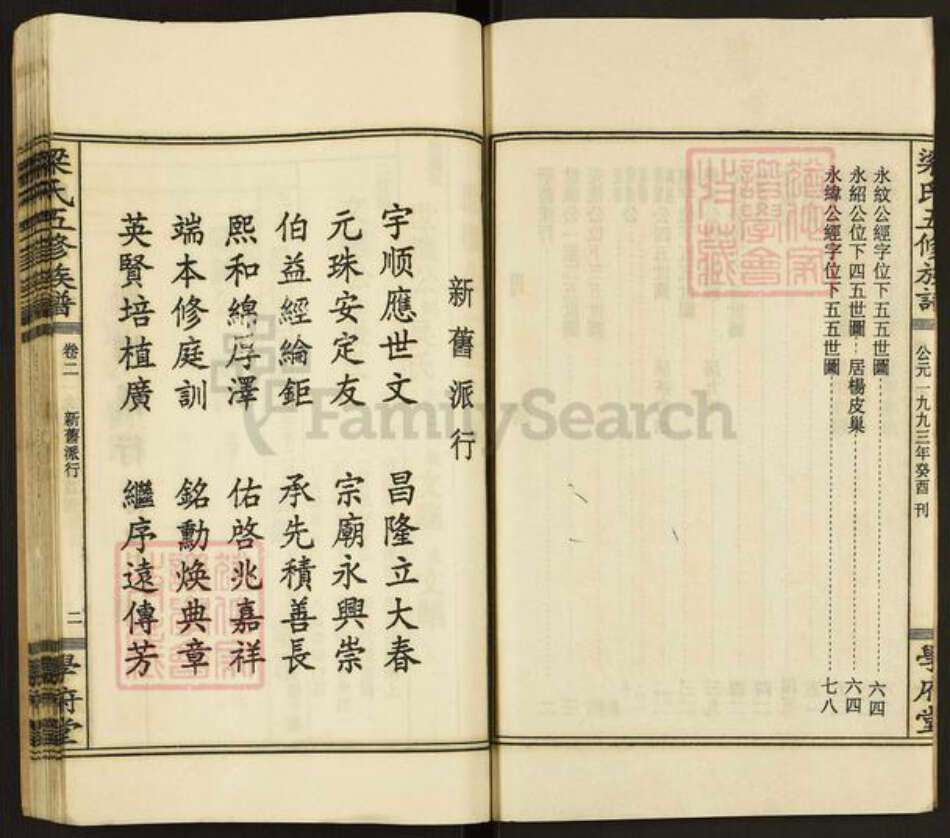 梁氏五修族譜
公元一九九三年癸酉 刊
學府堂
永紋公經字位下五五世圖 六四
永紹公位下四五世圖 居楊皮巢 六四
永緯公經字位下五五世圖 七八
新舊派行
宇順應世文 昌隆立大春
元珠安定友 宗廟永興崇
伯益經綸鉅 承先積善長
熙和綿厚澤 佑啓兆嘉祥
端本修庭訓 銘勳煥典章
英賢培植廣 繼序遠傳芳
梁氏五修族譜
卷二
新舊派行
二
學府堂
FamilySearch